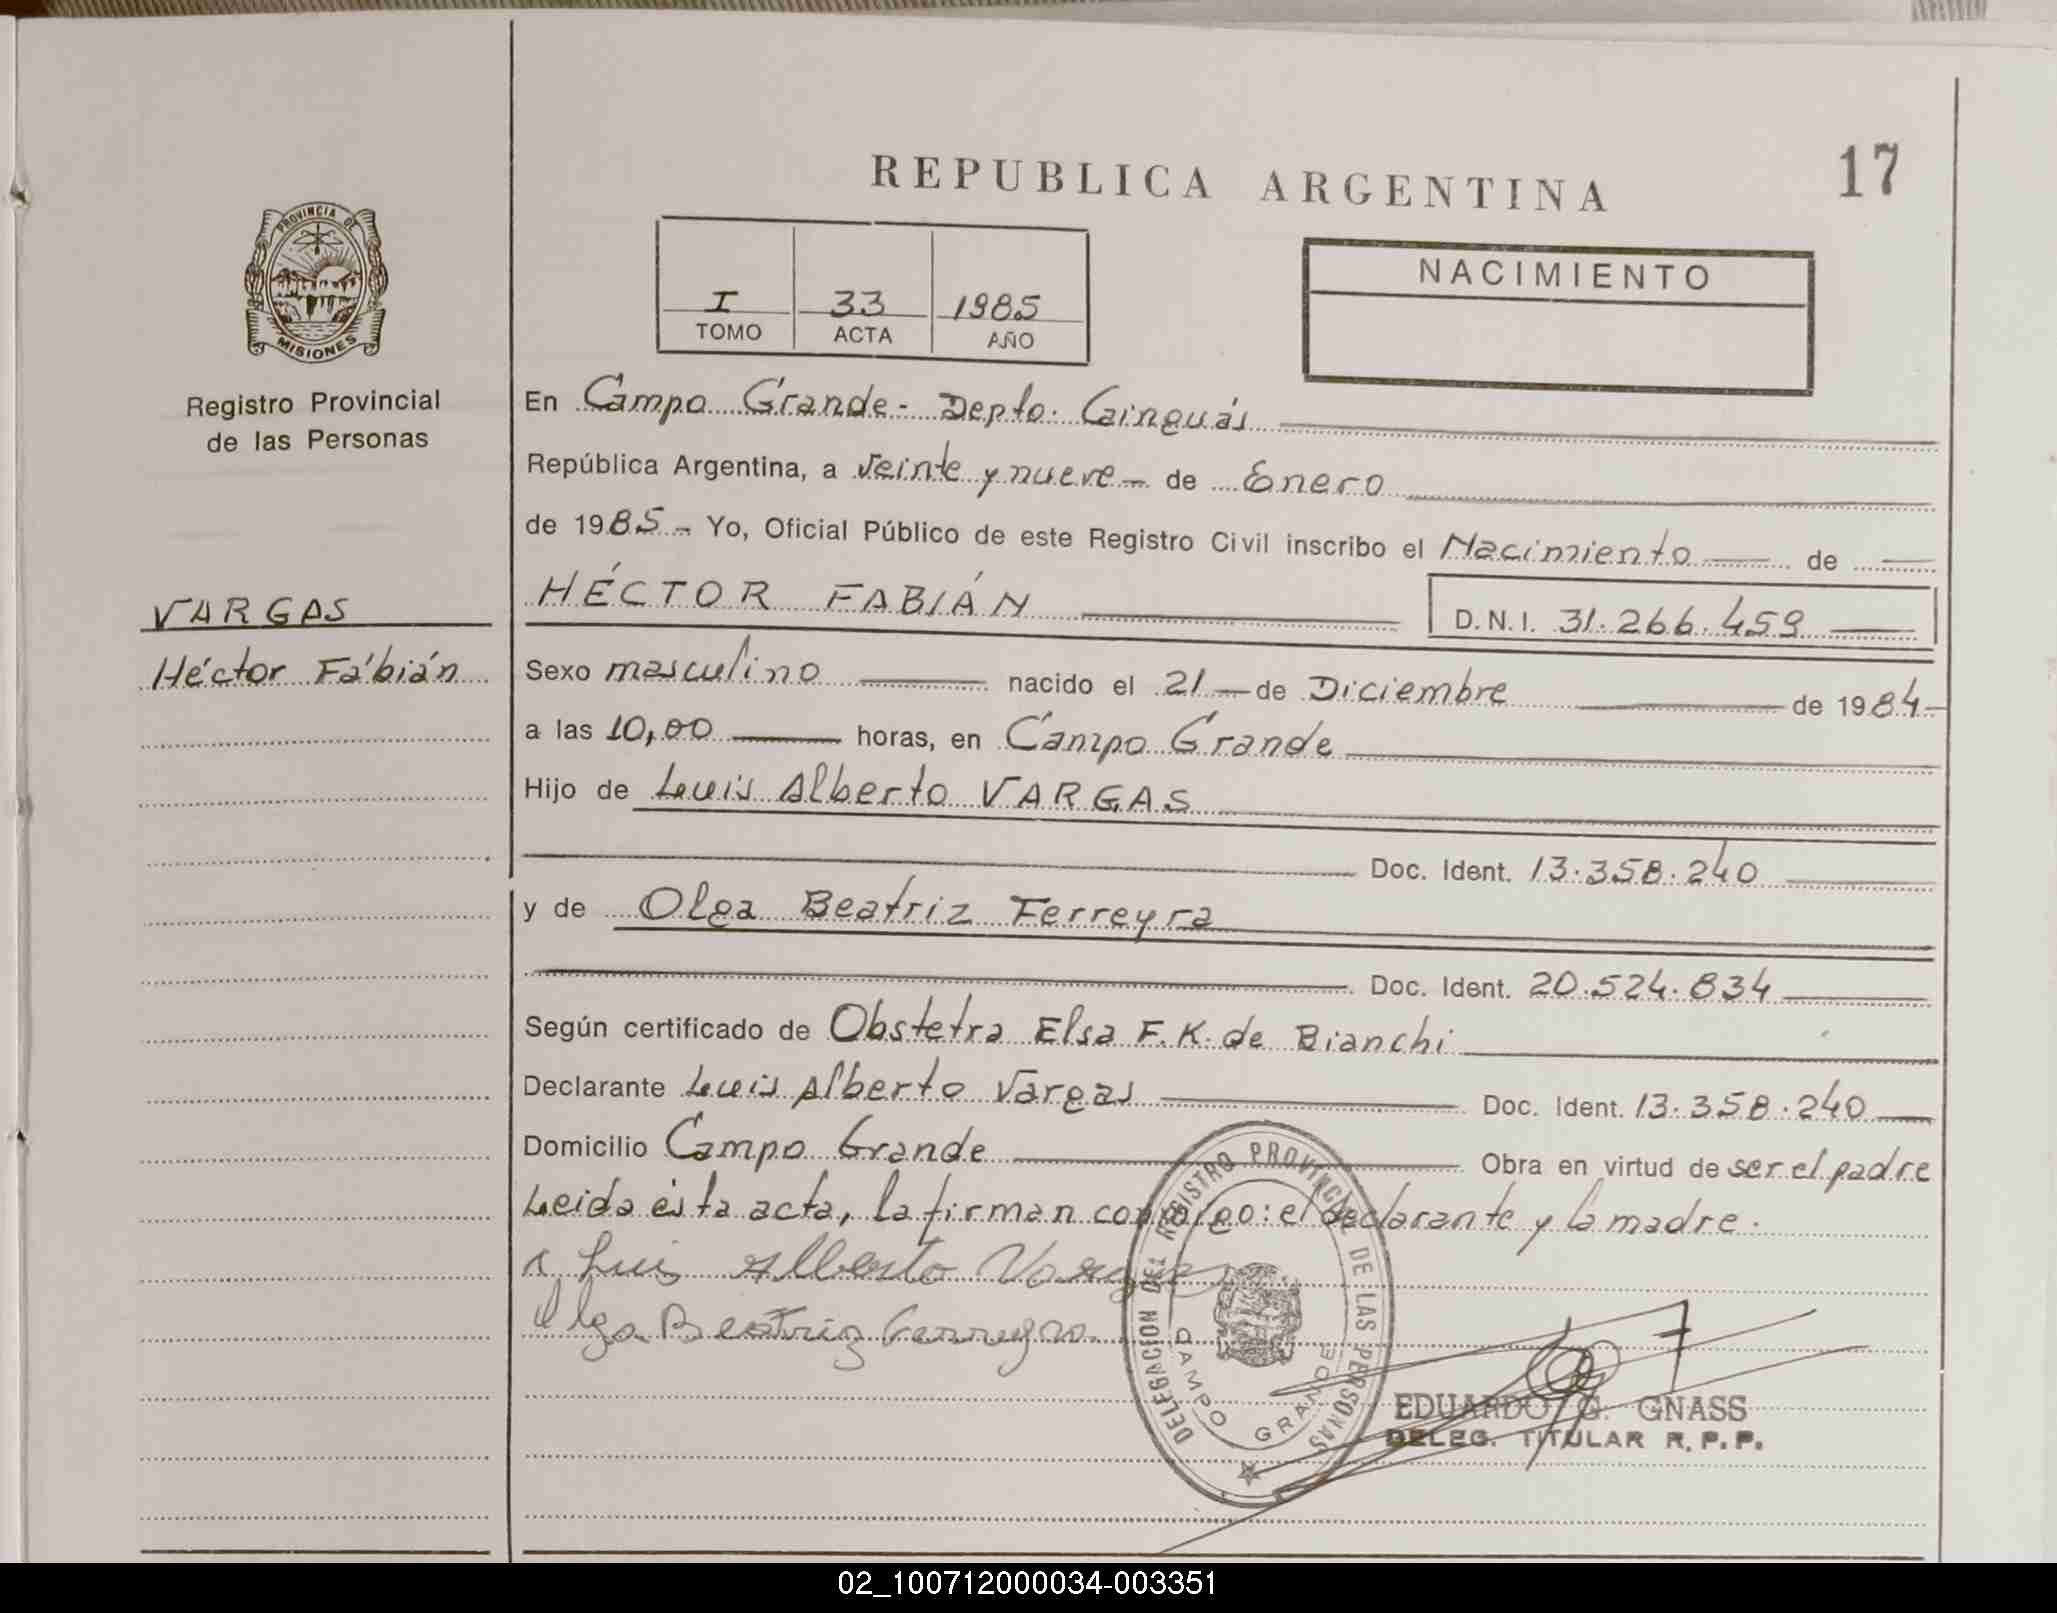 REPUBLICA ARGENTINA
17
PROVINCIA DE
MISIONES
Registro Provincial
de las Personas
I 33 1985
TOMO ACTA AÑO
NACIMIENTO
En Campo Grande - Depto. Cainguás
República Argentina, a veinte y nueve - de Enero
de 1985 - Yo, Oficial Público de este Registro Civil inscribo el Nacimiento de
VARGAS
HÉCTOR FABIÁN D.N.I. 31.266.459
Héctor Fábián
Sexo masculino nacido el 21 - de Diciembre de 1984 -
a las 10,00 horas, en Campo Grande
Hijo de Luis Alberto VARGAS
Doc. Ident. 13.358.240
y de Olga Beatriz Ferreyra
Doc. Ident. 20.524.834
Según certificado de Obstetra Elsa F. K. de Bianchi
Declarante Luis Alberto Vargas Doc. Ident. 13.358.240
Domicilio Campo Grande Obra en virtud de ser el padre
Leida ésta acta, la firman conmigo: el declarante y la madre.
Luis Alberto Vargas
Olga Beatriz Ferreyra.
DELEGACION DEL REGISTRO PROVINCIAL DE LAS PERSONAS
CAMPO GRANDE
EDUARDO G. GNASS
DELEG. TITULAR R. P. P.
02_100712000034-003351